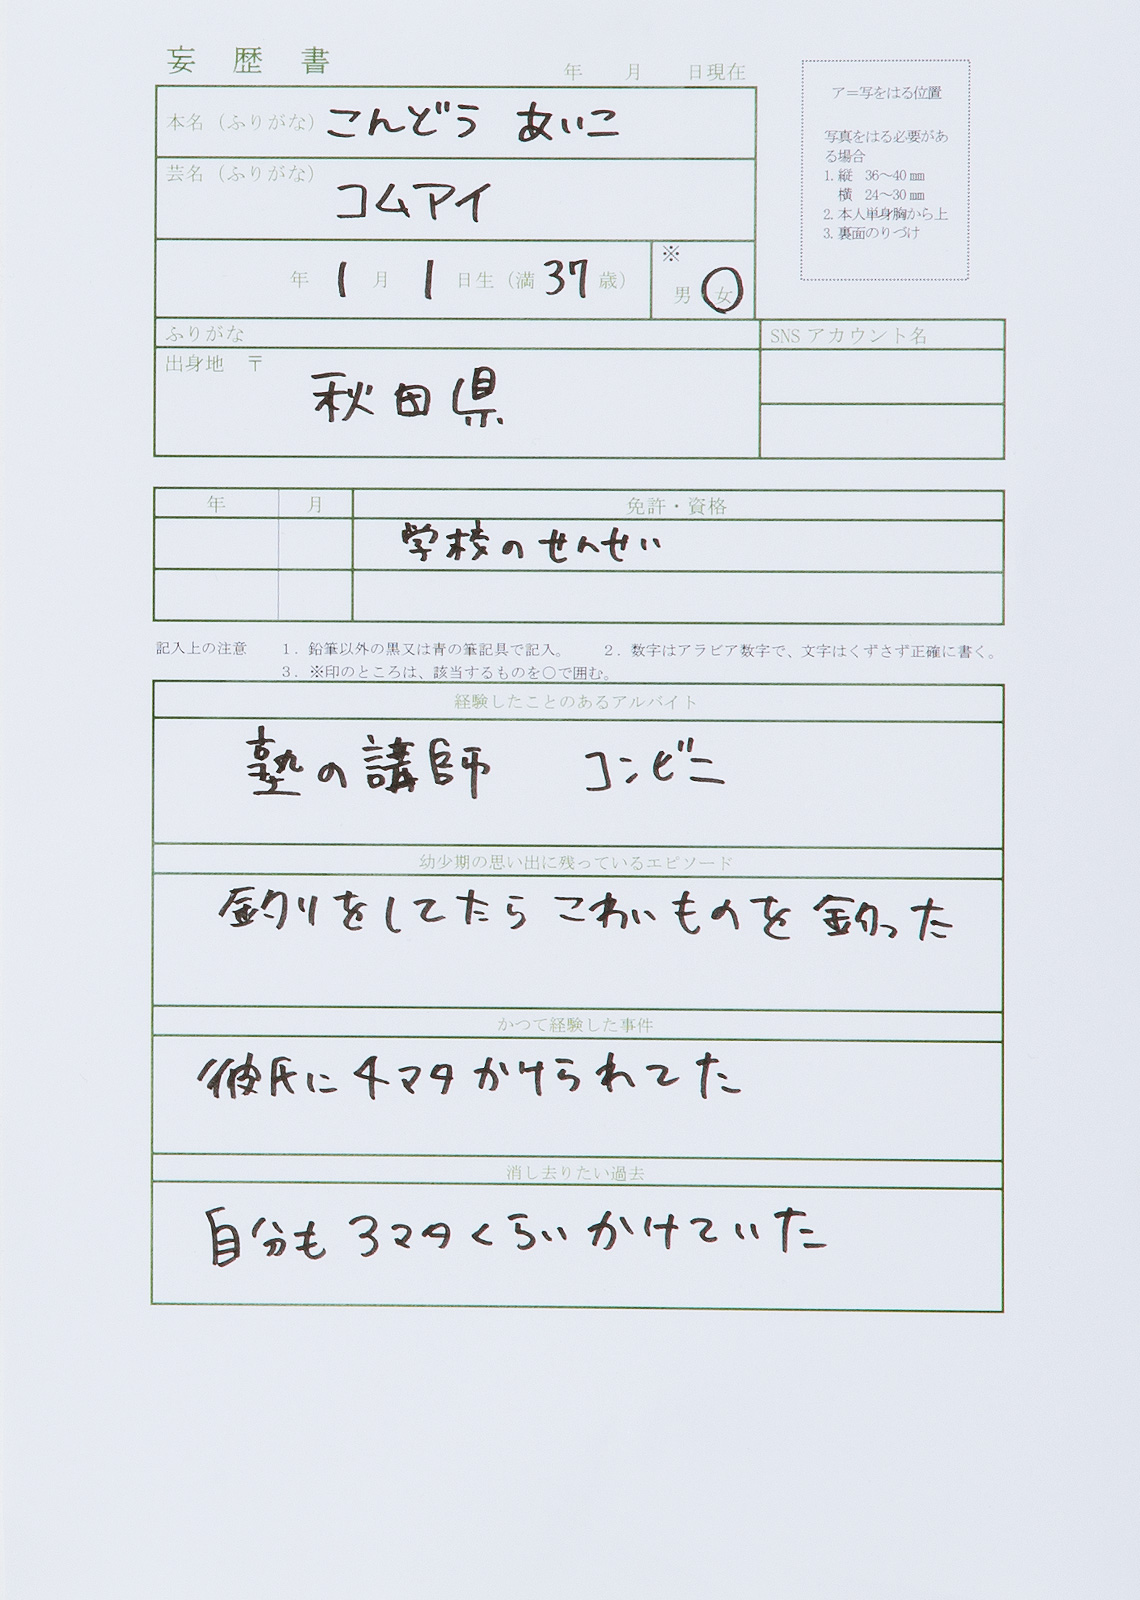 妄歴書
年 月 日現在
ア=写をはる位置
写真をはる必要があ
る場合
1. 縦 36〜40㎜
横 24〜30㎜
2. 本人単身胸から上
3. 裏面のりづけ
本名(ふりがな) こんどう あいこ
芸名(ふりがな) コムアイ
年 1 月 1 日生(満 37 歳)
※
男 女
ふりがな
SNS アカウント名
出身地 〒 秋田県
年 月 免許・資格
学校のせんせい
記入上の注意 1.鉛筆以外の黒又は青の筆記具で記入。 2.数字はアラビア数字で、文字はくずさず正確に書く。
3.※印のところは、該当するものを○で囲む。
経験したことのあるアルバイト
塾の講師 コンビニ
幼少期の思い出に残っているエピソード
釣りをしてたら こわいものを 釣った
かつて経験した事件
彼氏に4マタかけられてた
消し去りたい過去
自分も 3マタくらい かけていた